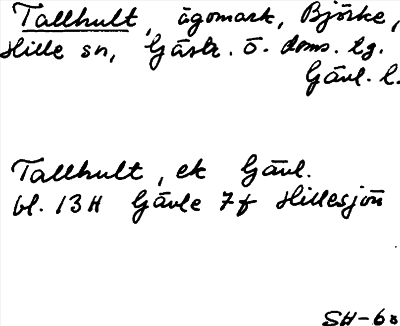 Tallhult, ägomark, Björke,
Hille sn, Gästr. ö. doms. tg.
Gävl. l.
Tallhult, ek Gävl.
bl. 13H Gävle 7f Hillesjön
SH-60